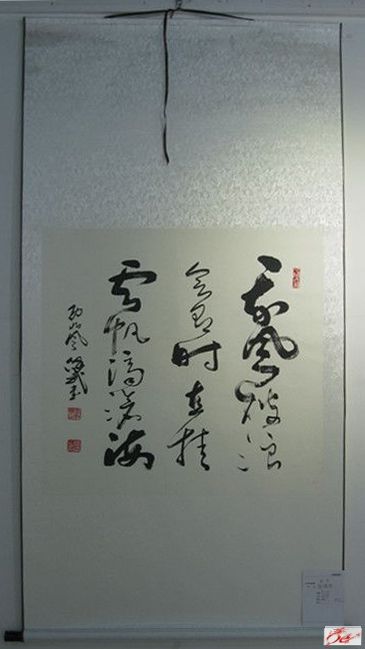 长风破浪
会有时直挂
云帆济沧海